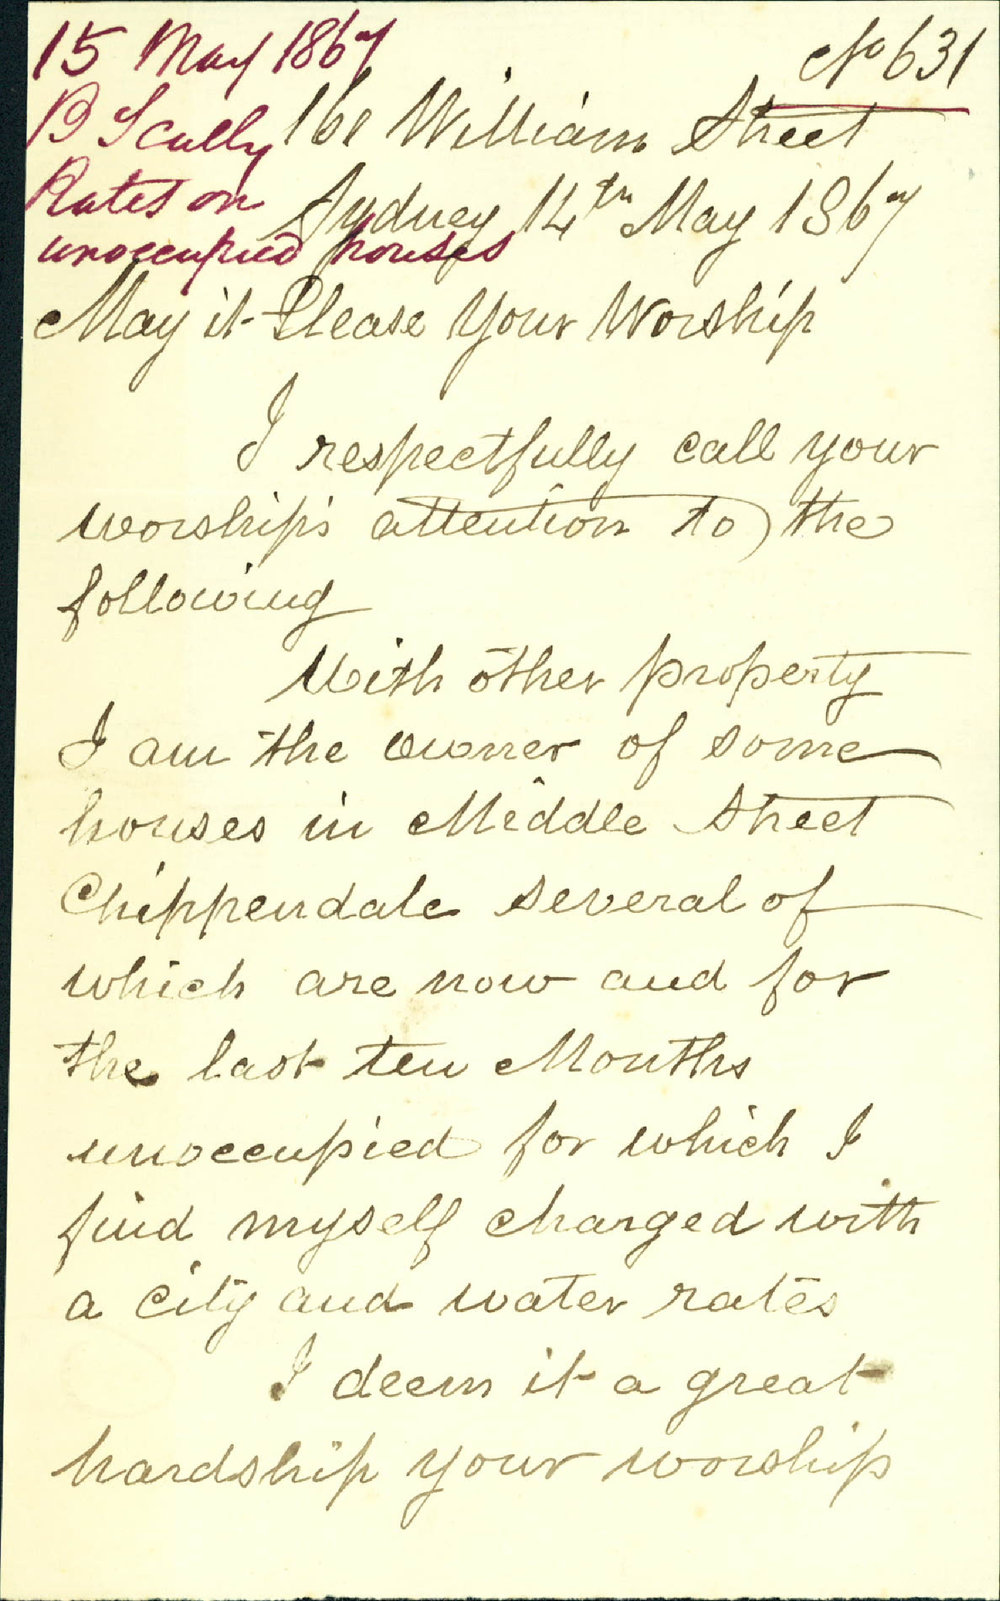 15 May 1867
No 631
B Scully
Rates on
unoccupied houses
161 William Street
Sydney 14th May 1867
May it Please Your Worship
I respectfully call your
worship's attention to the
following
With other property
I am the owner of some
houses in Middle Street
Chippendale several of
which are now and for
the last ten Months
unoccupied for which I
find myself charged with
a city and water rates
I deem it a great
hardship your worship